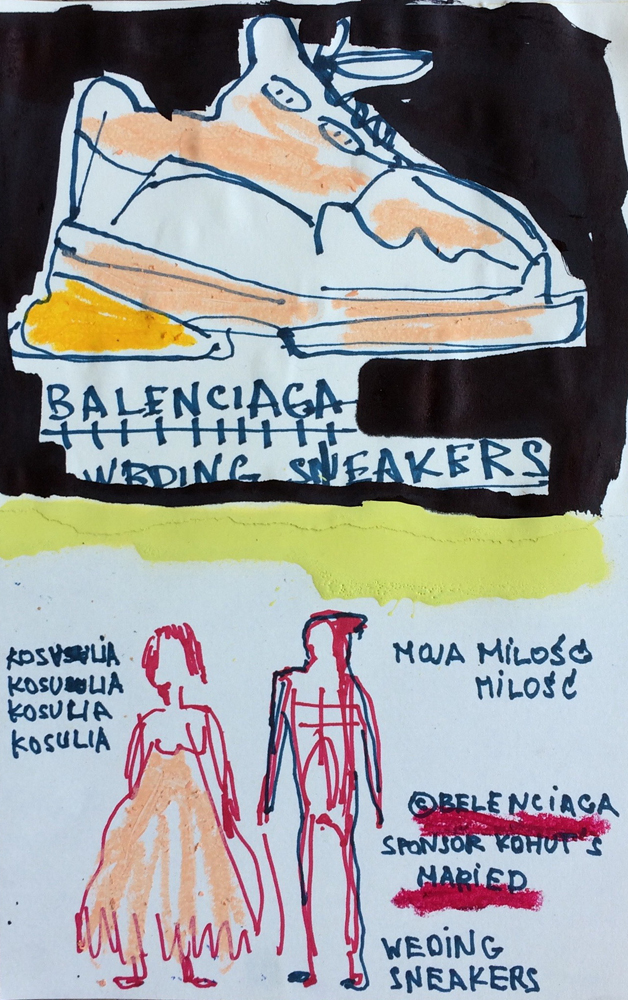 BALENCIAGA
WEDING SNEAKERS
KOSUSULIA
KOSUUULIA
KOSULIA
KOSULIA
MOJA MIŁOŚĆ
MIŁOŚĆ
©BELENCIAGA
SPONSOR KOHUT'S
MARIED
WEDING
SNEAKERS